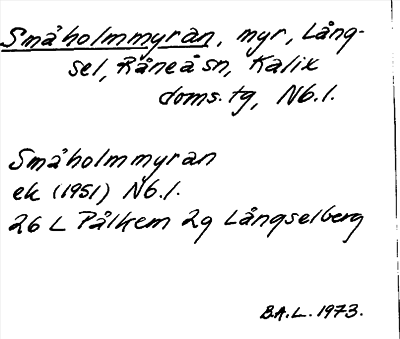 Småholmmyran, myr, Lång-
sel, Råneå sn, Kalix
doms. tg, Nb. l.
Småholmmyran
ek (1951) Nb. l.
26 L Pålkem 2g Långselberg
B.A.L. 1973.